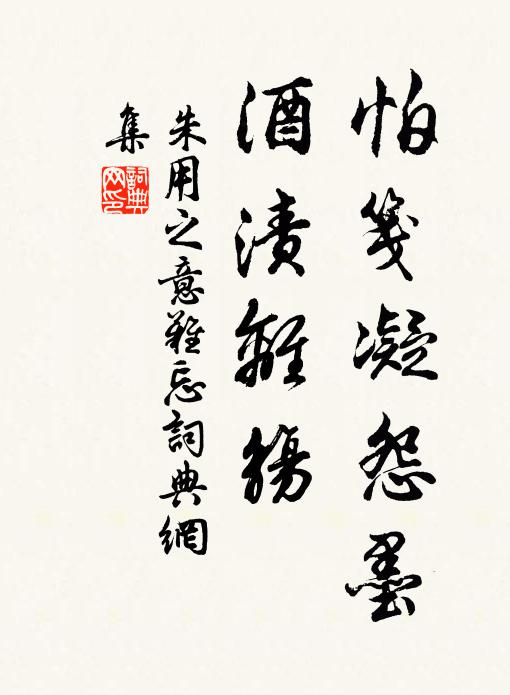 怕箋凝怨墨
酒漬離觴
朱用之意難忘詞典網
集
詞典網印